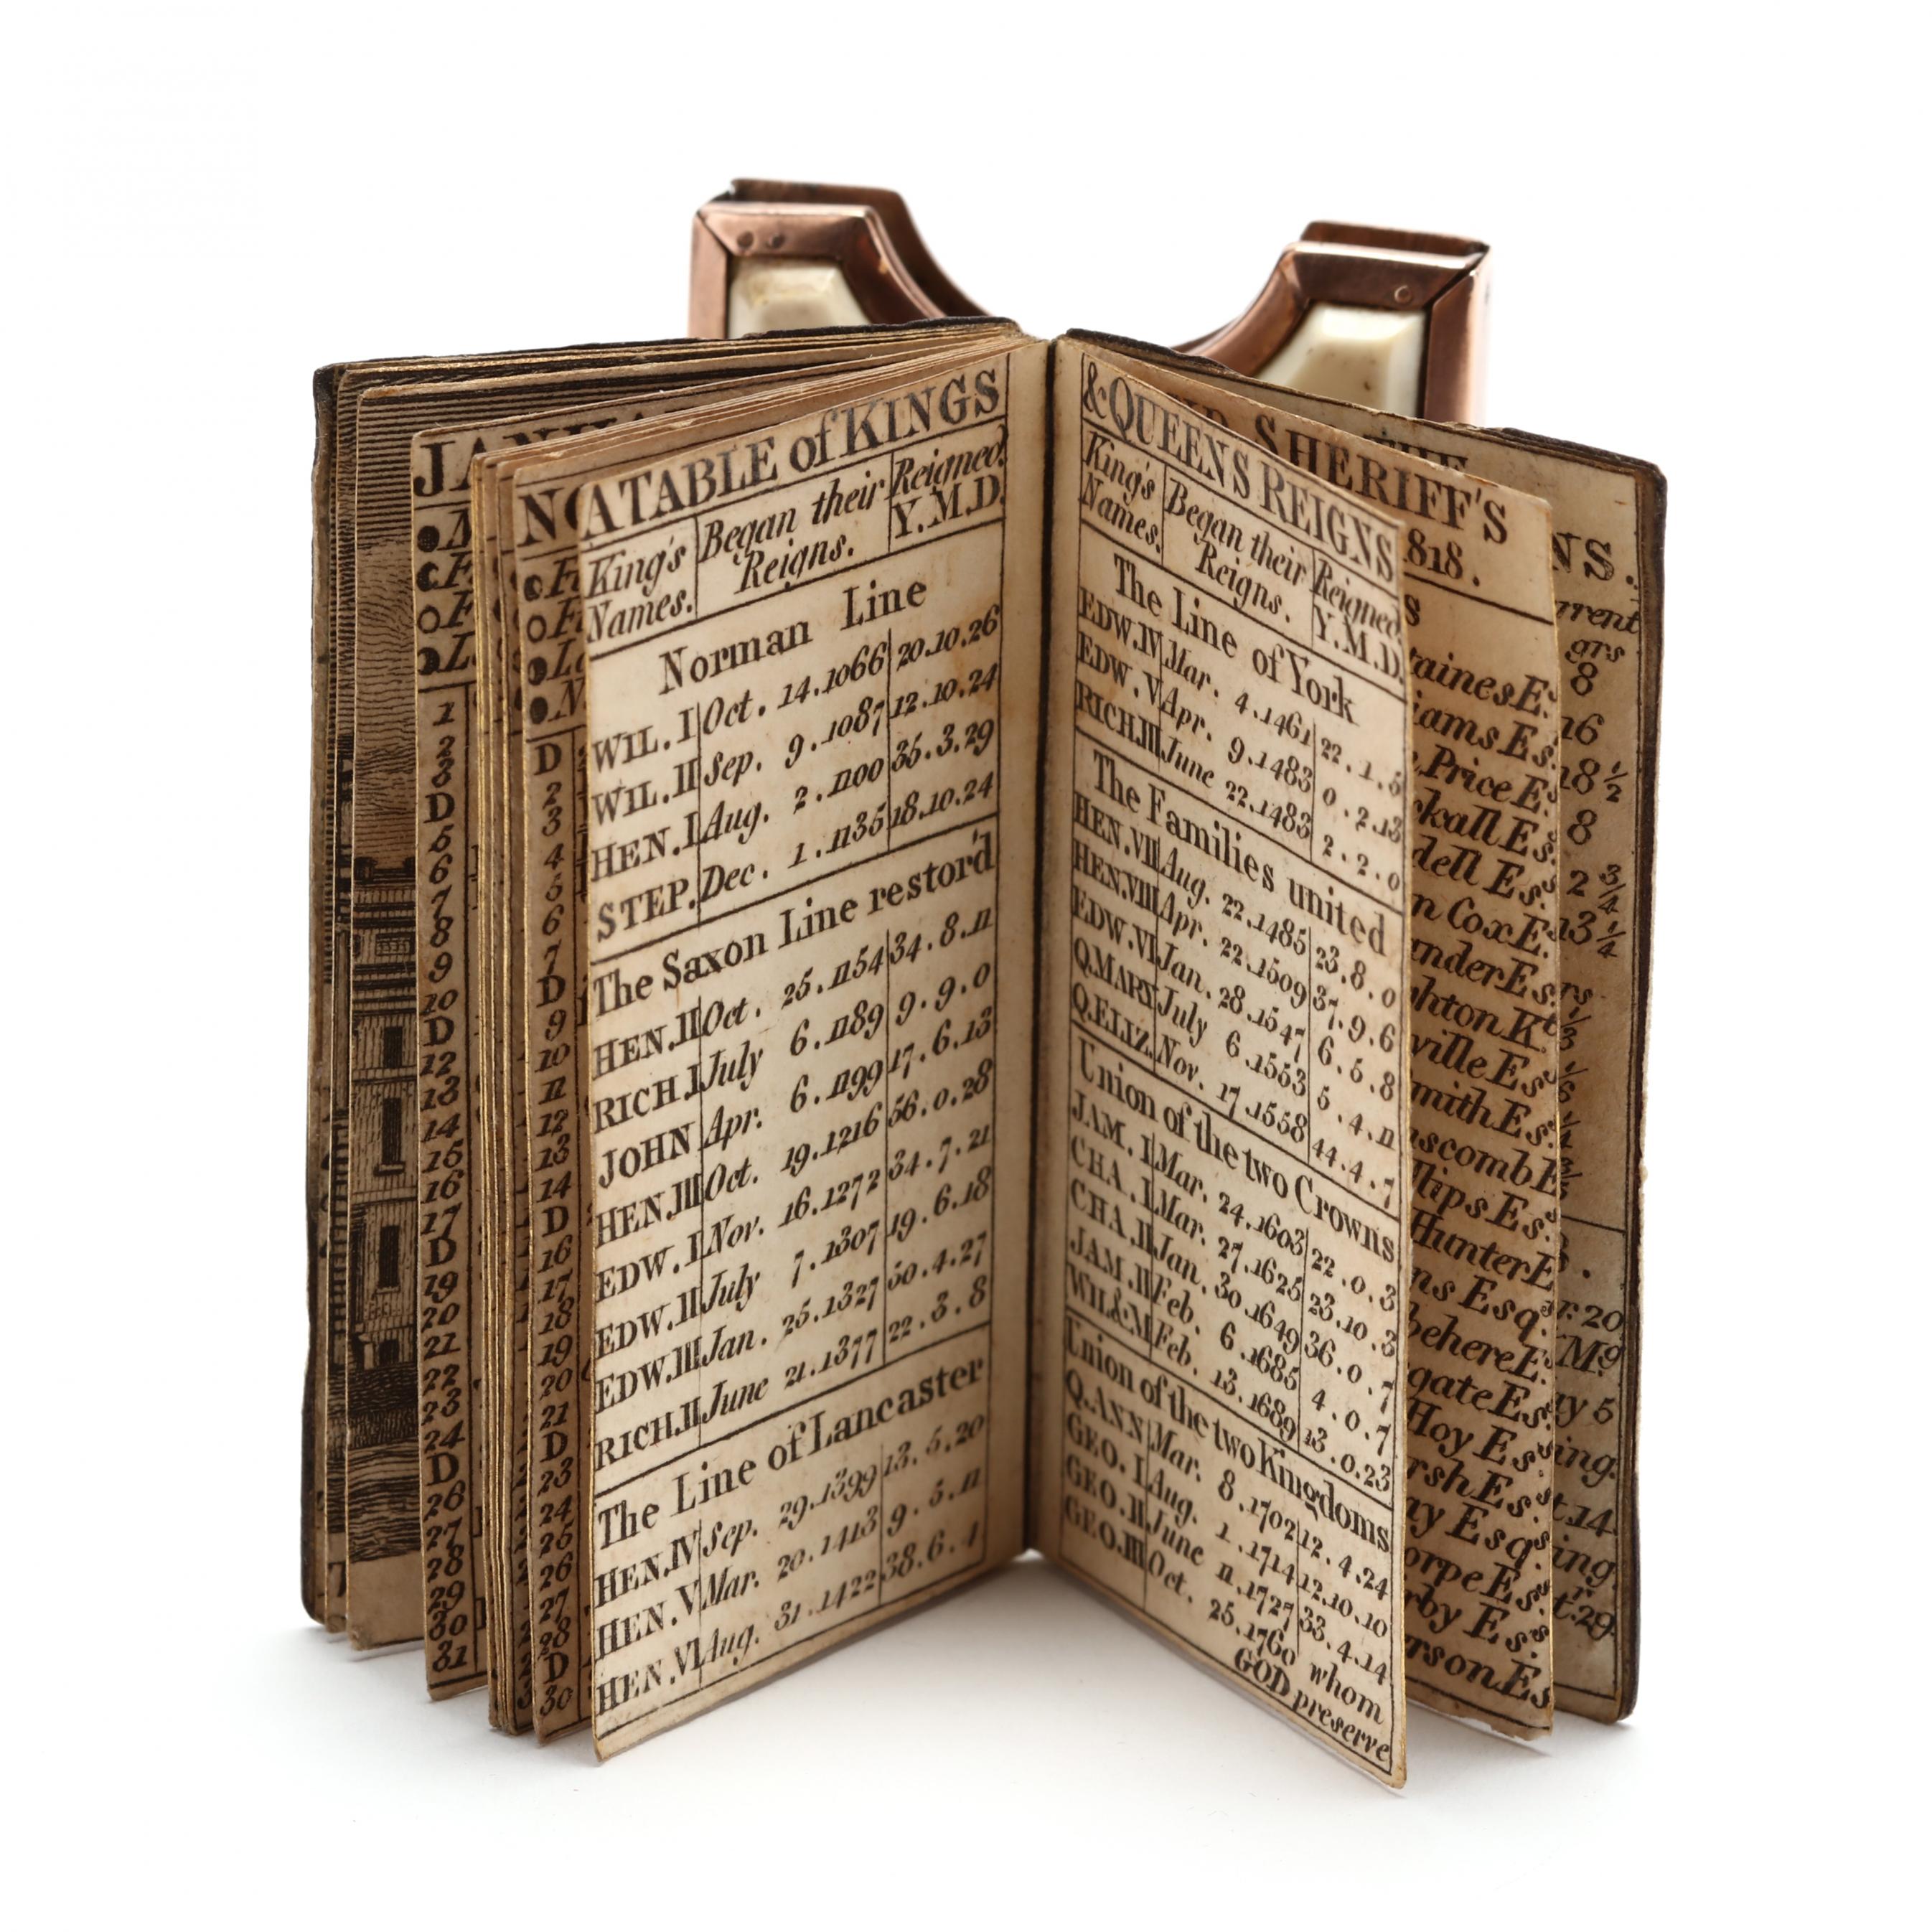 JAN
1
2
3
D
5
6
7
8
9
10
D
12
13
14
15
16
17
D
19
20
21
22
23
24
D
26
27
28
29
30
31
NO
D
2
3
4
5
6
7
D
9
10
11
12
13
14
D
16
17
18
19
20
21
D
23
24
25
26
27
28
D
30
A TABLE of KINGS
King's Names. Began their Reigns. Reigned Y.M.D.
Norman Line
WIL. I Oct. 14.1066 20.10.26
WIL. II Sep. 9.1087 12.10.24
HEN. I Aug. 2.1100 35.3.29
STEP. Dec. 1.1135 18.10.24
The Saxon Line restor'd
HEN. II Oct. 25.1154 34.8.11
RICH. I July 6.1189 9.9.0
JOHN Apr. 6.1199 17.6.13
HEN. III Oct. 19.1216 56.0.28
EDW. I Nov. 16.1272 34.7.21
EDW. II July 7.1307 19.6.18
EDW. III Jan. 25.1327 50.4.27
RICH. II June 21.1377 22.3.8
The Line of Lancaster
HEN. IV Sep. 29.1399 13.5.20
HEN. V Mar. 20.1413 9.5.11
HEN. VI Aug. 31.1422 38.6.4
& QUEENS REIGNS
King's Names. Began their Reigns. Reigned Y.M.D.
The Line of York
EDW. IV Mar. 4.1461 22.1.5
EDW. V Apr. 9.1483 0.2.13
RICH. III June 22.1483 2.2.0
The Families united
HEN. VII Aug. 22.1485 23.8.0
HEN. VIII Apr. 22.1509 37.9.6
EDW. VI Jan. 28.1547 6.5.8
Q. MARY July 6.1553 5.4.11
Q. ELIZ. Nov. 17.1558 44.4.7
Union of the two Crowns
JAM. I Mar. 24.1603 22.0.3
CHA. I Mar. 27.1625 23.10.3
CHA. II Jan. 30.1649 36.0.7
JAM. II Feb. 6.1685 4.0.7
WIL & M Feb. 13.1689 13.0.23
Union of the two Kingdoms
Q. ANN Mar. 8.1702 12.4.24
GEO. I Aug. 1.1714 12.10.10
GEO. II June 11.1727 33.4.14
GEO. III Oct. 25.1760 whom
GOD preserve
SHERIFF'S
818.
Price
Cox
Hunter
Esq.
Hoy
Esq.
NS.
grs
8
16
18 1/2
8
2 3/4
13 1/4